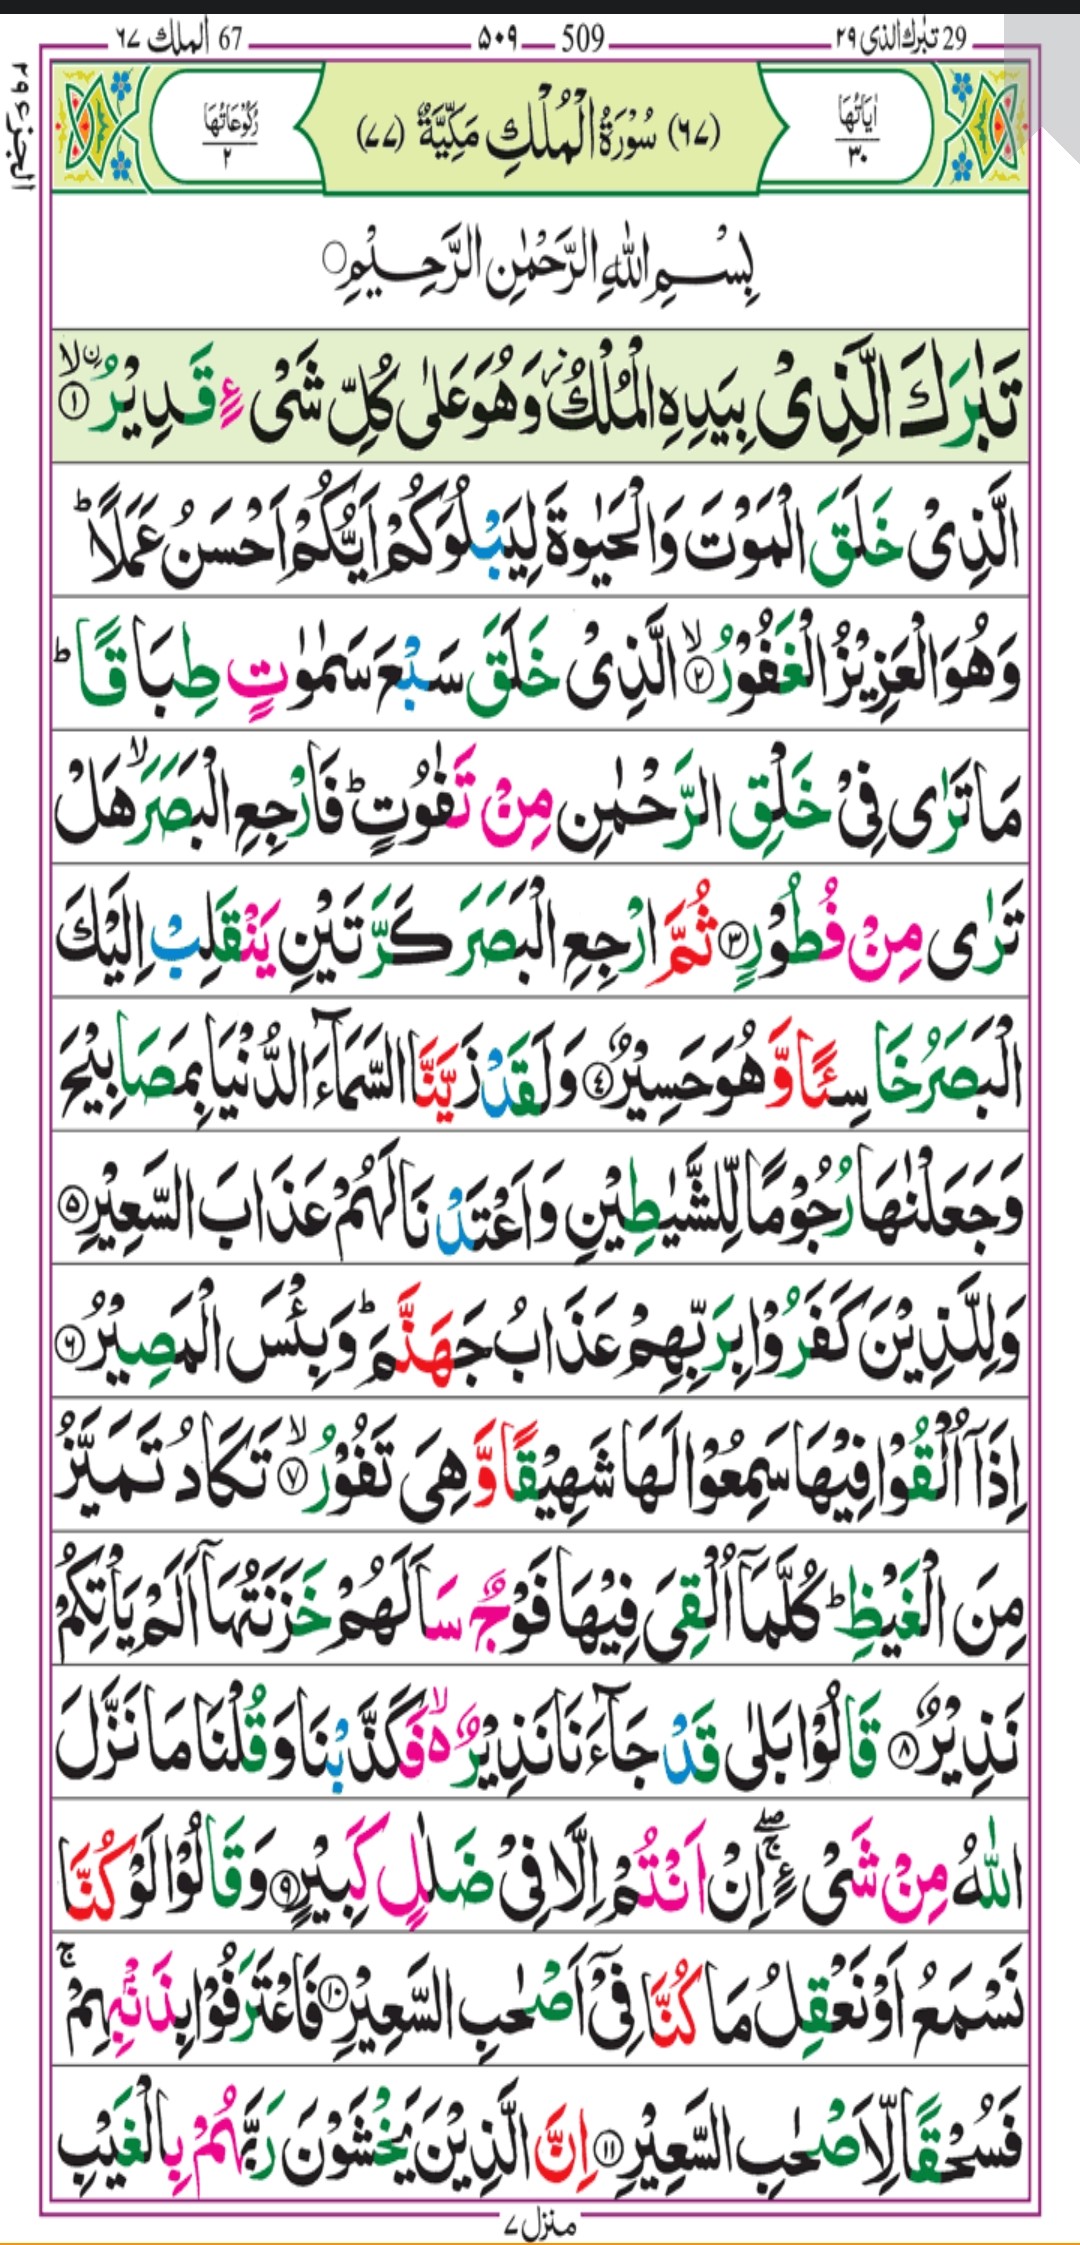 29 تبٰرك الذی ۲۹
509 ــ ۵۰۹
67 الملك ۶۷
الجزء ۲۹
اٰیَاتُهَا ۳۰
(۶۷) سُوْرَةُ الْمُلْكِ مَكِّيَّةٌ (۷۷)
رُكُوْعَاتُهَا ۲
بِسْمِ اللّٰهِ الرَّحْمٰنِ الرَّحِيْمِ○
تَبٰرَكَ الَّذِیْ بِیَدِهِ الْمُلْكُ ؗ وَهُوَ عَلٰی كُلِّ شَیْءٍ قَدِیْرُۙ ﹰ۱
الَّذِیْ خَلَقَ الْمَوْتَ وَالْحَیٰوةَ لِیَبْلُوَكُمْ اَیُّكُمْ اَحْسَنُ عَمَلًا ؕ
وَهُوَ الْعَزِیْزُ الْغَفُوْرُۙ ۲ الَّذِیْ خَلَقَ سَبْعَ سَمٰوٰتٍ طِبَاقًا ؕ
مَا تَرٰی فِیْ خَلْقِ الرَّحْمٰنِ مِنْ تَفٰوُتٍ ؕ فَارْجِعِ الْبَصَرَ ۙ هَلْ
تَرٰی مِنْ فُطُوْرٍ ۳ ثُمَّ ارْجِعِ الْبَصَرَ كَرَّتَیْنِ یَنْقَلِبْ اِلَیْكَ
الْبَصَرُ خَاسِئًا وَّ هُوَ حَسِیْرٌ ۴ وَلَقَدْ زَیَّنَّا السَّمَآءَ الدُّنْیَا بِمَصَابِیْحَ
وَجَعَلْنٰهَا رُجُوْمًا لِّلشَّیٰطِیْنِ وَاَعْتَدْنَا لَهُمْ عَذَابَ السَّعِیْرِ ۵
وَلِلَّذِیْنَ كَفَرُوْا بِرَبِّهِمْ عَذَابُ جَهَنَّمَ ؕ وَبِئْسَ الْمَصِیْرُ ۶
اِذَاۤ اُلْقُوْا فِیْهَا سَمِعُوْا لَهَا شَهِیْقًا وَّ هِیَ تَفُوْرُۙ ۷ تَكَادُ تَمَیَّزُ
مِنَ الْغَیْظِ ؕ كُلَّمَاۤ اُلْقِیَ فِیْهَا فَوْجٌ سَاَلَهُمْ خَزَنَتُهَاۤ اَلَمْ یَاْتِكُمْ
نَذِیْرٌ ۸ قَالُوْا بَلٰی قَدْ جَآءَنَا نَذِیْرٌ ۙ۬ فَكَذَّبْنَا وَقُلْنَا مَا نَزَّلَ
اللّٰهُ مِنْ شَیْءٍ ۚۖ اِنْ اَنْتُمْ اِلَّا فِیْ ضَلٰلٍ كَبِیْرٍ ۹ وَقَالُوْا لَوْ كُنَّا
نَسْمَعُ اَوْ نَعْقِلُ مَا كُنَّا فِیْۤ اَصْحٰبِ السَّعِیْرِ ۱۰ فَاعْتَرَفُوْا بِذَنْۢبِهِمْ ۚ
فَسُحْقًا لِّاَصْحٰبِ السَّعِیْرِ ۱۱ اِنَّ الَّذِیْنَ یَخْشَوْنَ رَبَّهُمْ بِالْغَیْبِ
منزل ۷